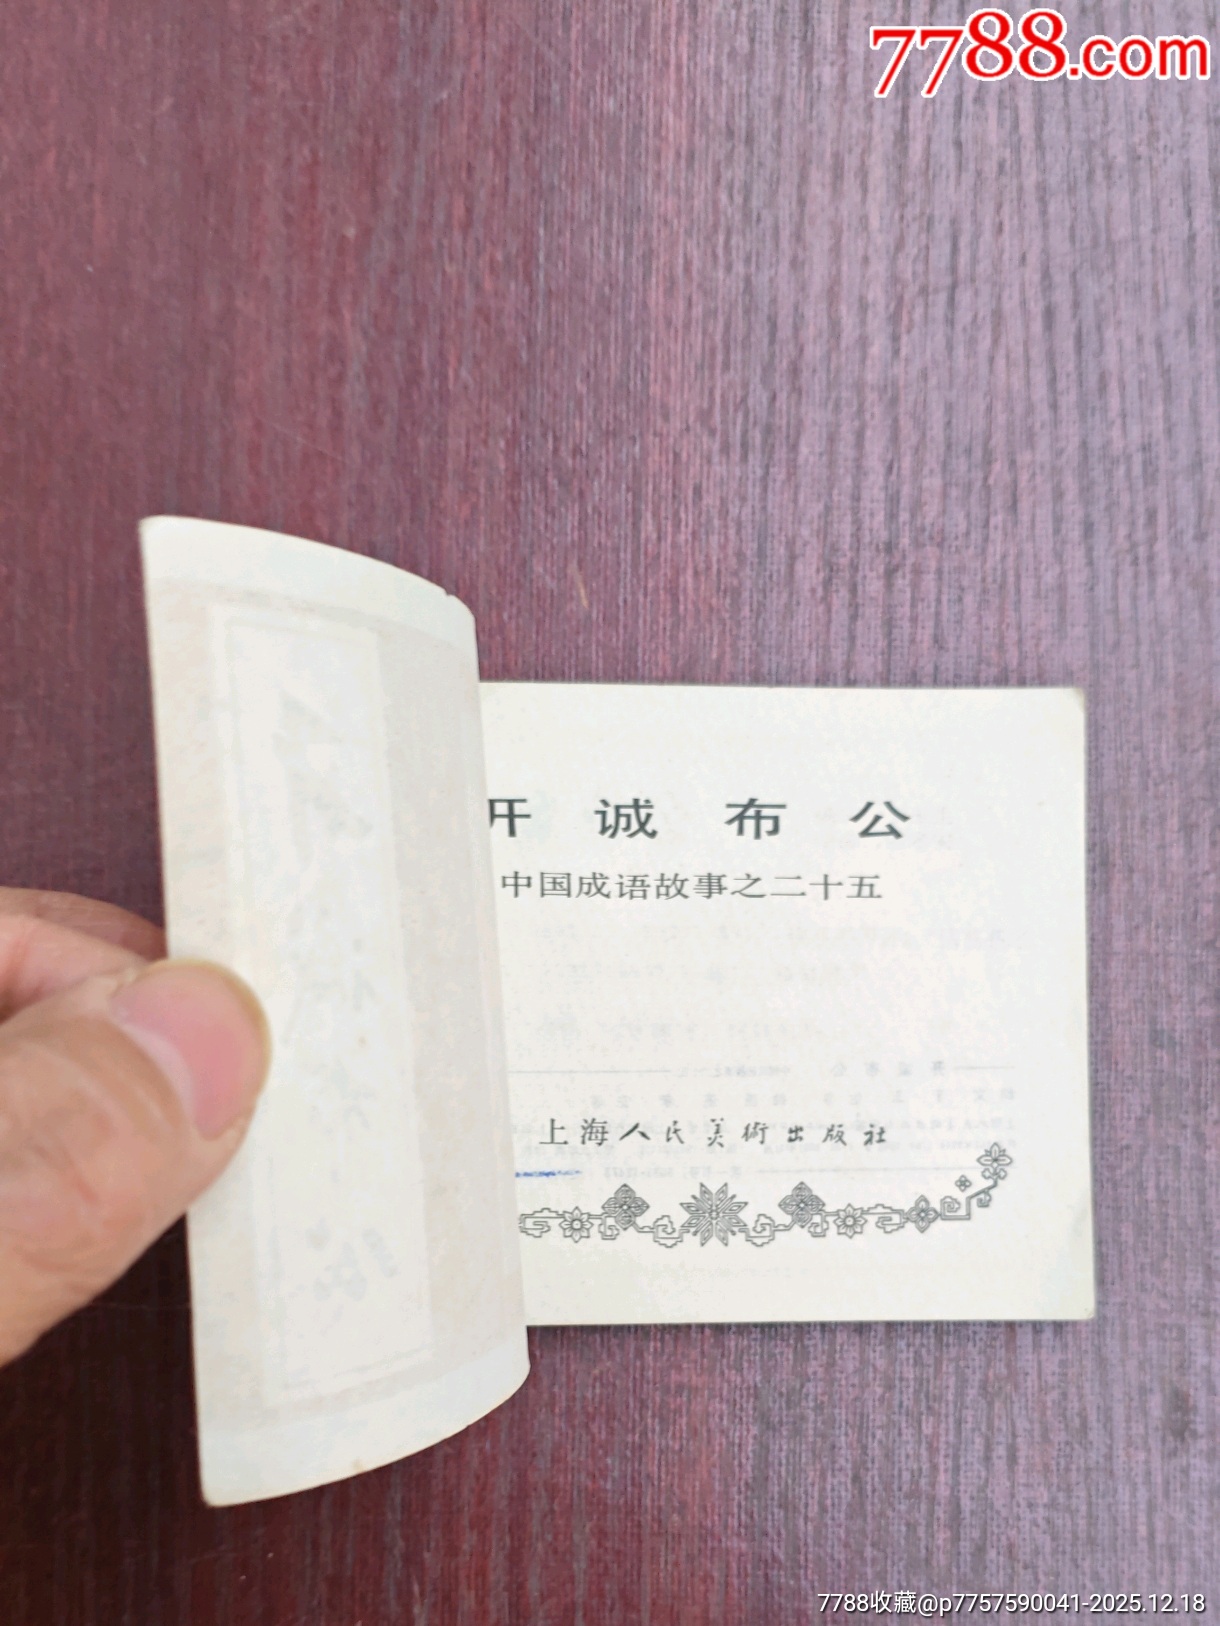 7788.com
开诚布公
中国成语故事之二十五
上海人民美術出版社
7788收藏@p7757590041-2025.12.18